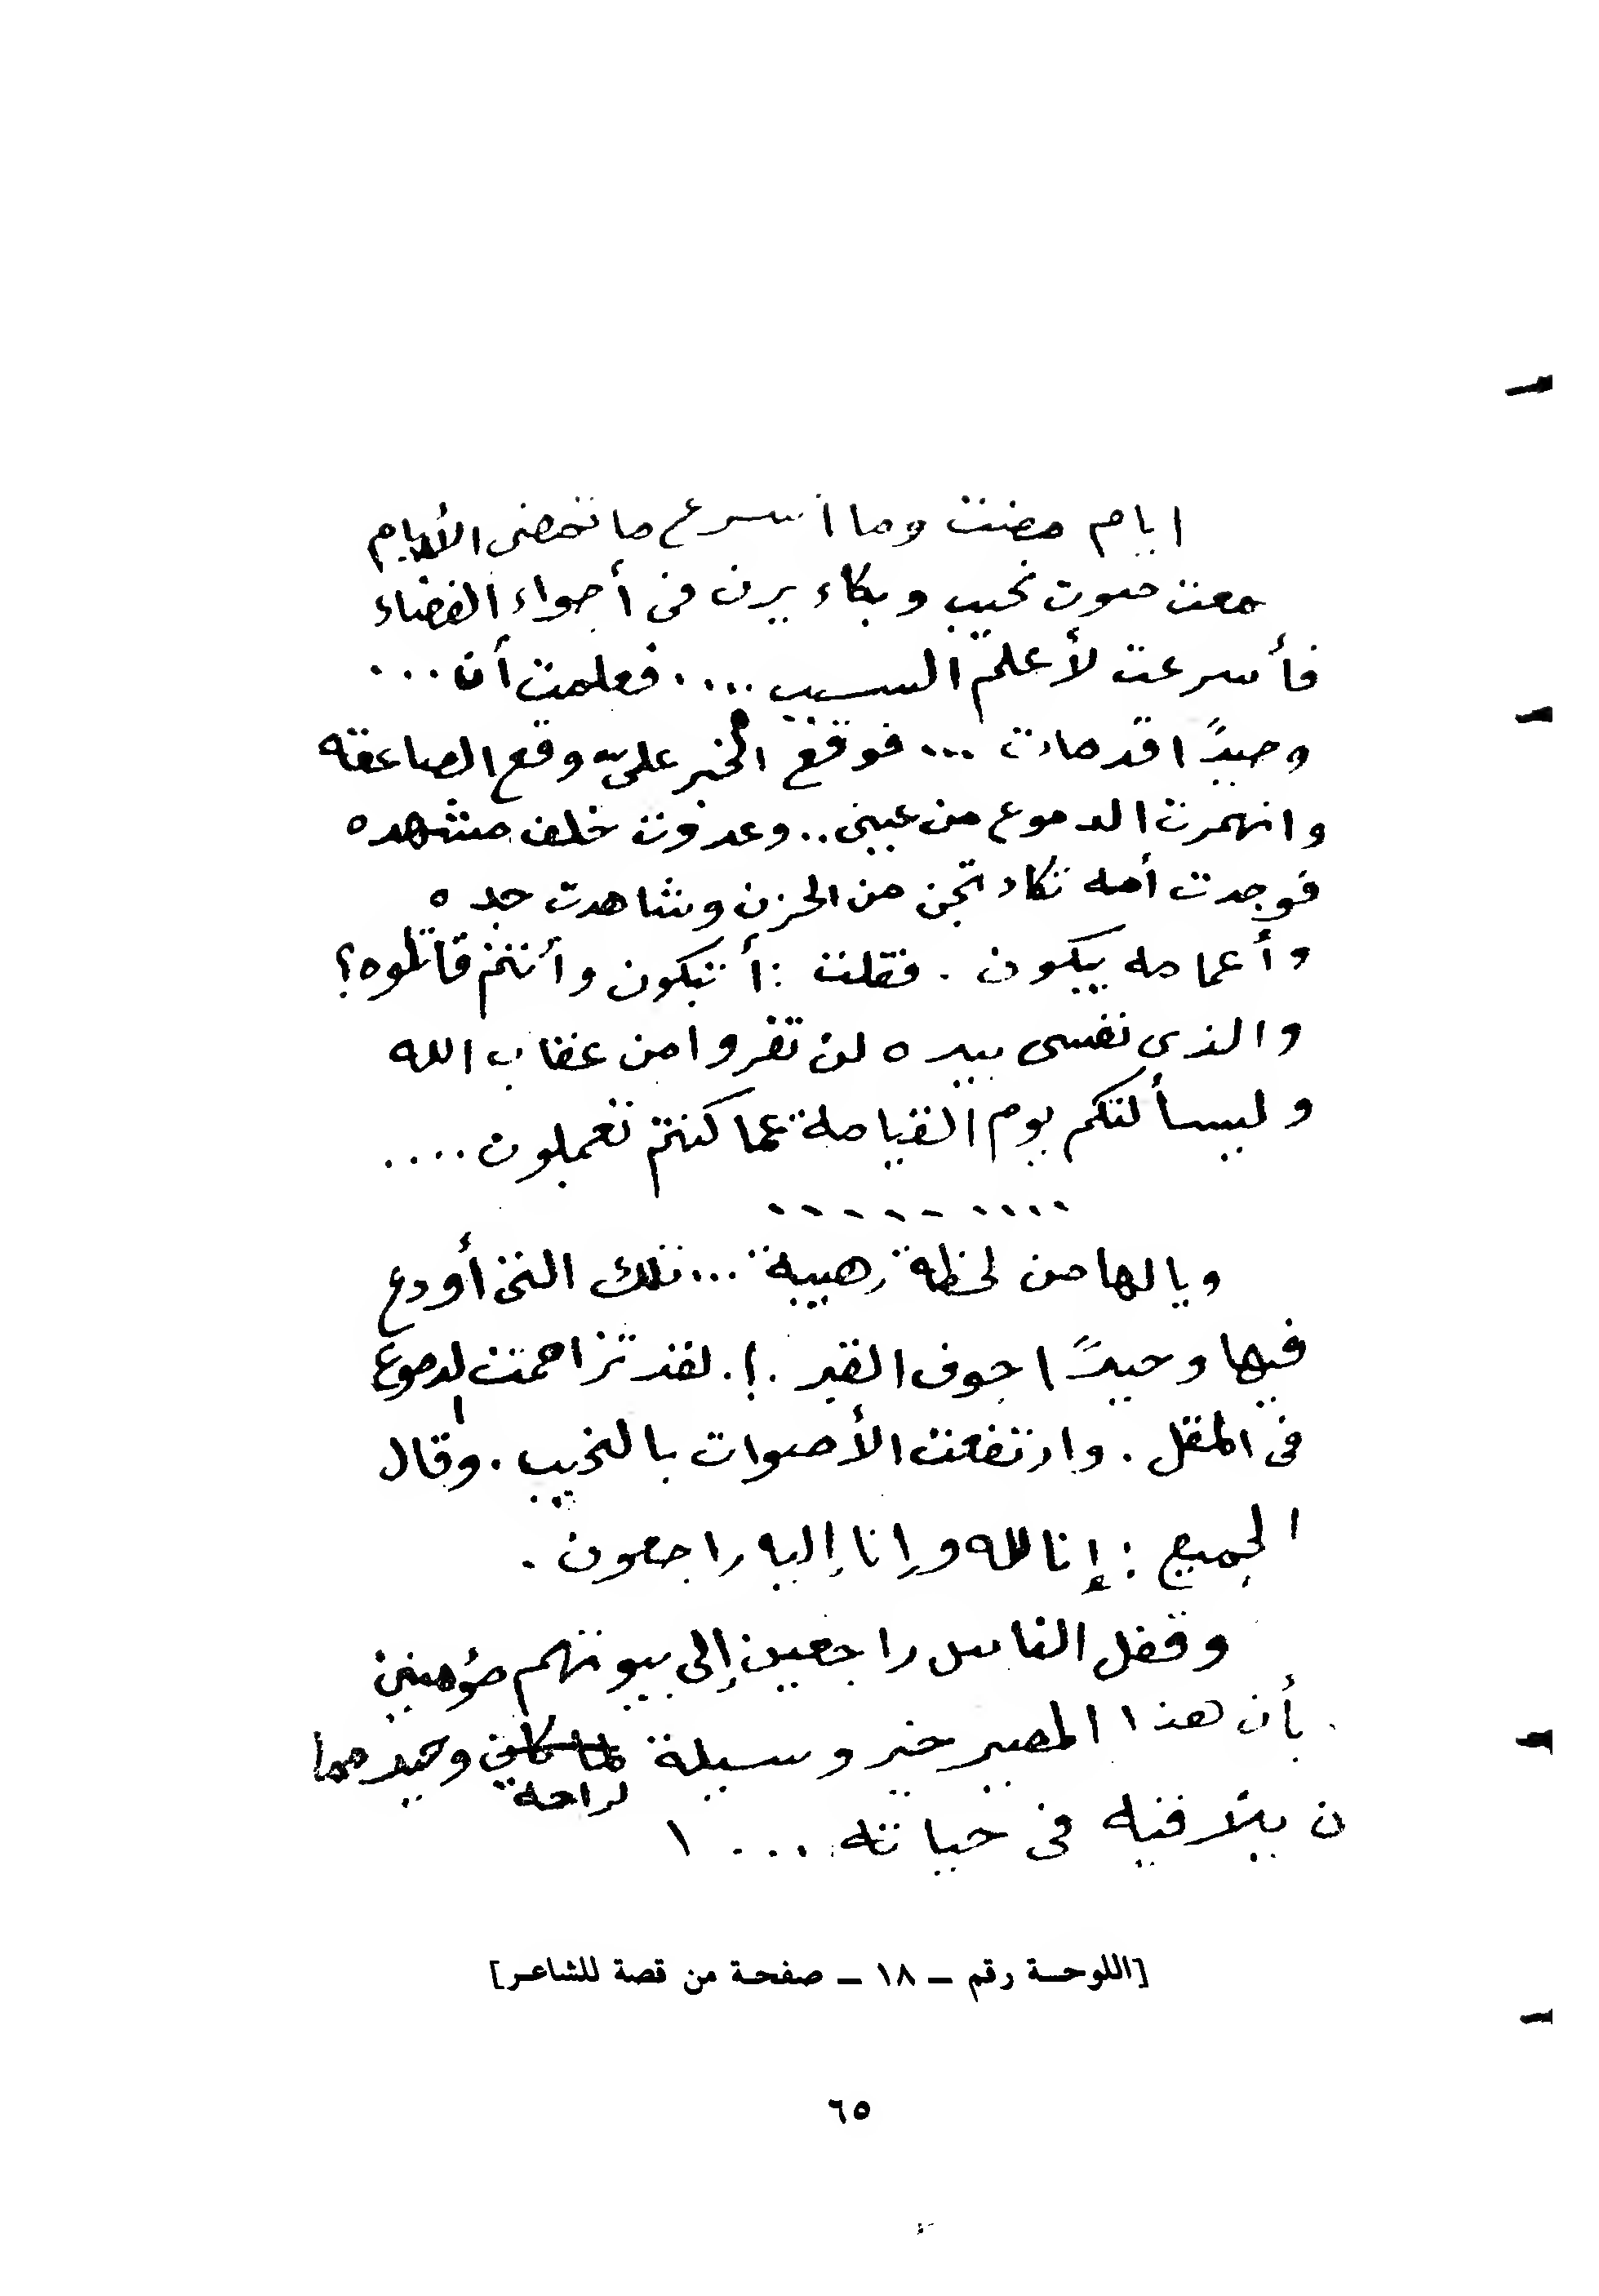 ايام مضت وما أسرع ما تمضى الأيام
معت صوت نحيب وبكاء يرن فى أجواء الفضاء
فأسرعت لأعلم السبب .... فعلمت أن ...
وحيدًا قد مات ... فوقع الخبر علىّ وقع الصاعقة
وانهمرت الدموع من عينى .. وعدوت خلف مشهده
فوجدت أمه تكاد تجن من الحزن وشاهدت جده
وأعمامه يبكون . فقلت : أتبكون وأنتم قاتلوه؟
والذى نفسى بيده لن تفروا من عقاب الله
وليسألنكم يوم القيامة عما كنتم تعملون ....
..........
ويا لها من لحظة رهيبة ... تلك التى أودع
فيها وحيدًا جوف القبر .!. لقد تزاحمت الدموع
فى المقل . وارتفعت الأصوات بالنحيب . وقال
الجميع : إنا لله وإنا إليه راجعون .
وقفل الناس راجعين إلى بيوتهم مؤمنين
بأن هذا المصير خير وسيلة لراحة وحيد مما
ن يلاقيه فى حياته ... ١
[اللوحة رقم – ١٨ – صفحة من قصة للشاعر]
٦٥